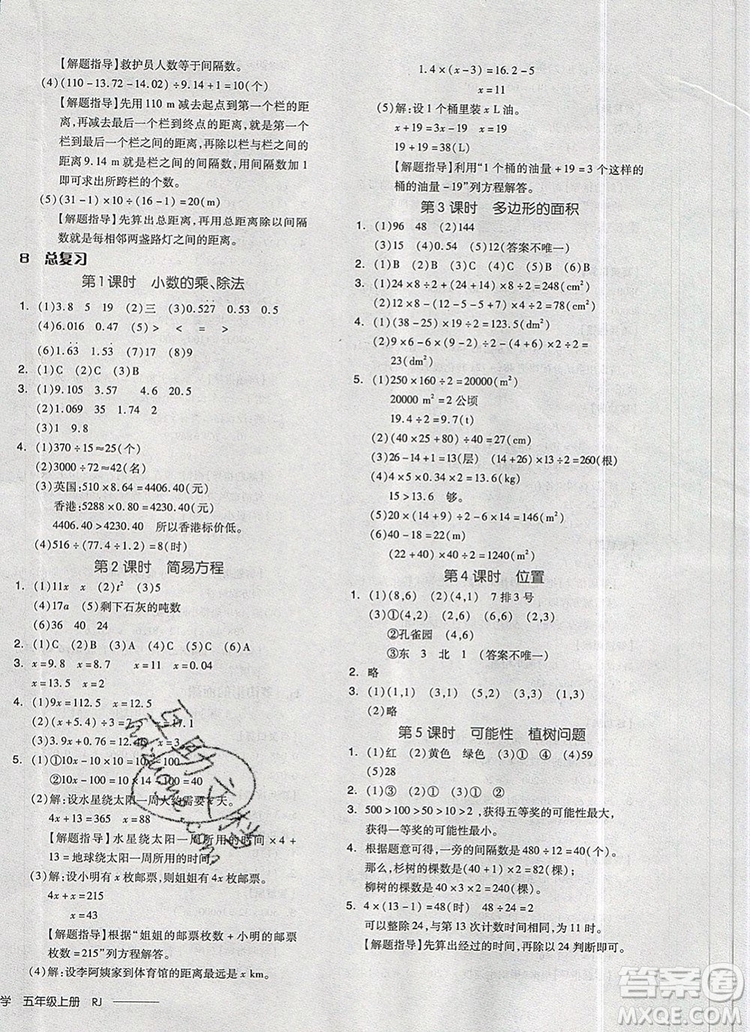 【解题指导】救护员人数等于间隔数。
(4)(110-13.72-14.02)÷9.14+1=10(个)
【解题指导】先用110 m减去起点到第一个栏的距
离,再减去最后一个栏到终点的距离,就是第一个
栏到最后一个栏之间的距离,再除以栏与栏之间的
距离9.14 m就是栏之间的间隔数,用间隔数加
1即可求出所跨栏的个数。
(5)(31-1)×10÷(16-1)=20(m)
【解题指导】先算出总距离,用总距离除以间隔
数就是每相邻两盏路灯之间的距离。
8 总复习
第1课时 小数的乘、除法
1. (1)3.8 5 19 (2)三 (3)0.527 0.53 0.5
(4)6.016 0.47 (5)> < = >
(6)1.63 1.53 (7)17 (8)9
2. (1)C (2)A (3)C (4)B
3. (1)9.105 3.57 4.6 20.5
(2)1.069 35 1.74 20.4
(3)1 9.8
4. (1)370÷15≈24(个)
(2)3000÷72≈42(名)
(3)英国:510×8.64=4406.40(元)
香港:5288×0.80=4230.40(元)
4406.40>4230.40 所以香港标价低。
(4)516÷(77.4÷1.2)=8(时)
第2课时 简易方程
1. (1)11x (2)t² (3)5
(4)17a (5)剩下石灰的吨数
2. (1)C (2)B (3)A (4)C (5)B
3. x=9.8 x=8.7 x=11 x=115
x=13.5 x=2
4. (1)9x=112.5 x=12.5
(2)5x+7.5=93 x=17.1
5. (1)①10x=200 x=20
②10x-200=93 x=29.3
(2)解:设水星绕太阳一周大约需要x天。
4x+13=365 x=88
【解题指导】水星绕太阳一周所用的时间×4+
13=地球绕太阳一周所用的时间。
(3)解:设小明有x枚邮票,则姐姐有4x枚邮票。
4x+x=215
x=43
【解题指导】根据“姐姐的邮票枚数+小明的邮票
枚数=215”列方程解答。
(4)解:设李阿姨家到体育馆的距离是x km。
学 五年级上册 RJ
1.4×(x-3)=16.2-5
x=11
(5)解:设1个桶里装x L油。
x+19=3x-19
x=19
19+19=38(L)
【解题指导】利用“1个桶的油量+19=3个这样的
桶的油量-19”列方程解答。
第3课时 多边形的面积
1. (1)96 48 (2)144
(3)15 (4)0.54 (5)12 (答案不唯一)
2. (1)C (2)B (3)A (4)C
3. (1)24×8÷2+24×(20.5-8)÷2=248(cm²)
(2)12×8-(12-5-5)×(8-4)÷2=92(cm²)
4. (1)(38-25)×19÷2=123.5(m²)
(2)9×6-9×(6-2)÷2-(6-2)×6÷2-
9×2÷2=15(cm²)
5. (1)250×160÷2=20000(m²)
20000 m²=2公顷
19.4÷2=9.7(t)
(2)(46-20)×20÷2=260(m²)
(3)26-14+1=13(层) (14+26)×13÷2=260(根)
(4)4×2.5÷2×4×0.68=13.6(kg)
15>13.6 够。
(5)20×(14+6)÷2-(20-6)×14÷2-6×6÷2=
84(cm²)
(6)40-18=22(m)
(18+22)×12÷2=240(m²)
第4课时 位置
1. (1)(6,5) (2)(4,1) 7排3号
(3)①(4,2) (7,1) (2,6)
②孔雀园 (4,6)
③东 3 北 1 (答案不唯一)
2. 略
3. (1)(1,1) (5,1) (5,3) (1,3)
(2)略
第5课时 可能性 植树问题
1. (1)红 (2)黄色 绿色 (3)12 (4)30
(5)28
2. (1)① (2)③ (3)③
3. 500>100>50>10>2,获得五等奖的可能性最大,
获得一等奖的可能性最小。
4. 根据题意可得,一旁的间隔数是480÷12=40(个),
那么,杉树的棵数是(40+1)×2=82(棵),
柳树的棵数也是(40+1)×2=82(棵)。
5. (13-1)÷6=2(时) 48÷2=24(时)
所以要经过24时,与第13次计数时间相同。
【解题指导】先算出经过的时间,再除以24判断即可。
互助文档
huzuowendang.com
答案圈
MXQE.COM